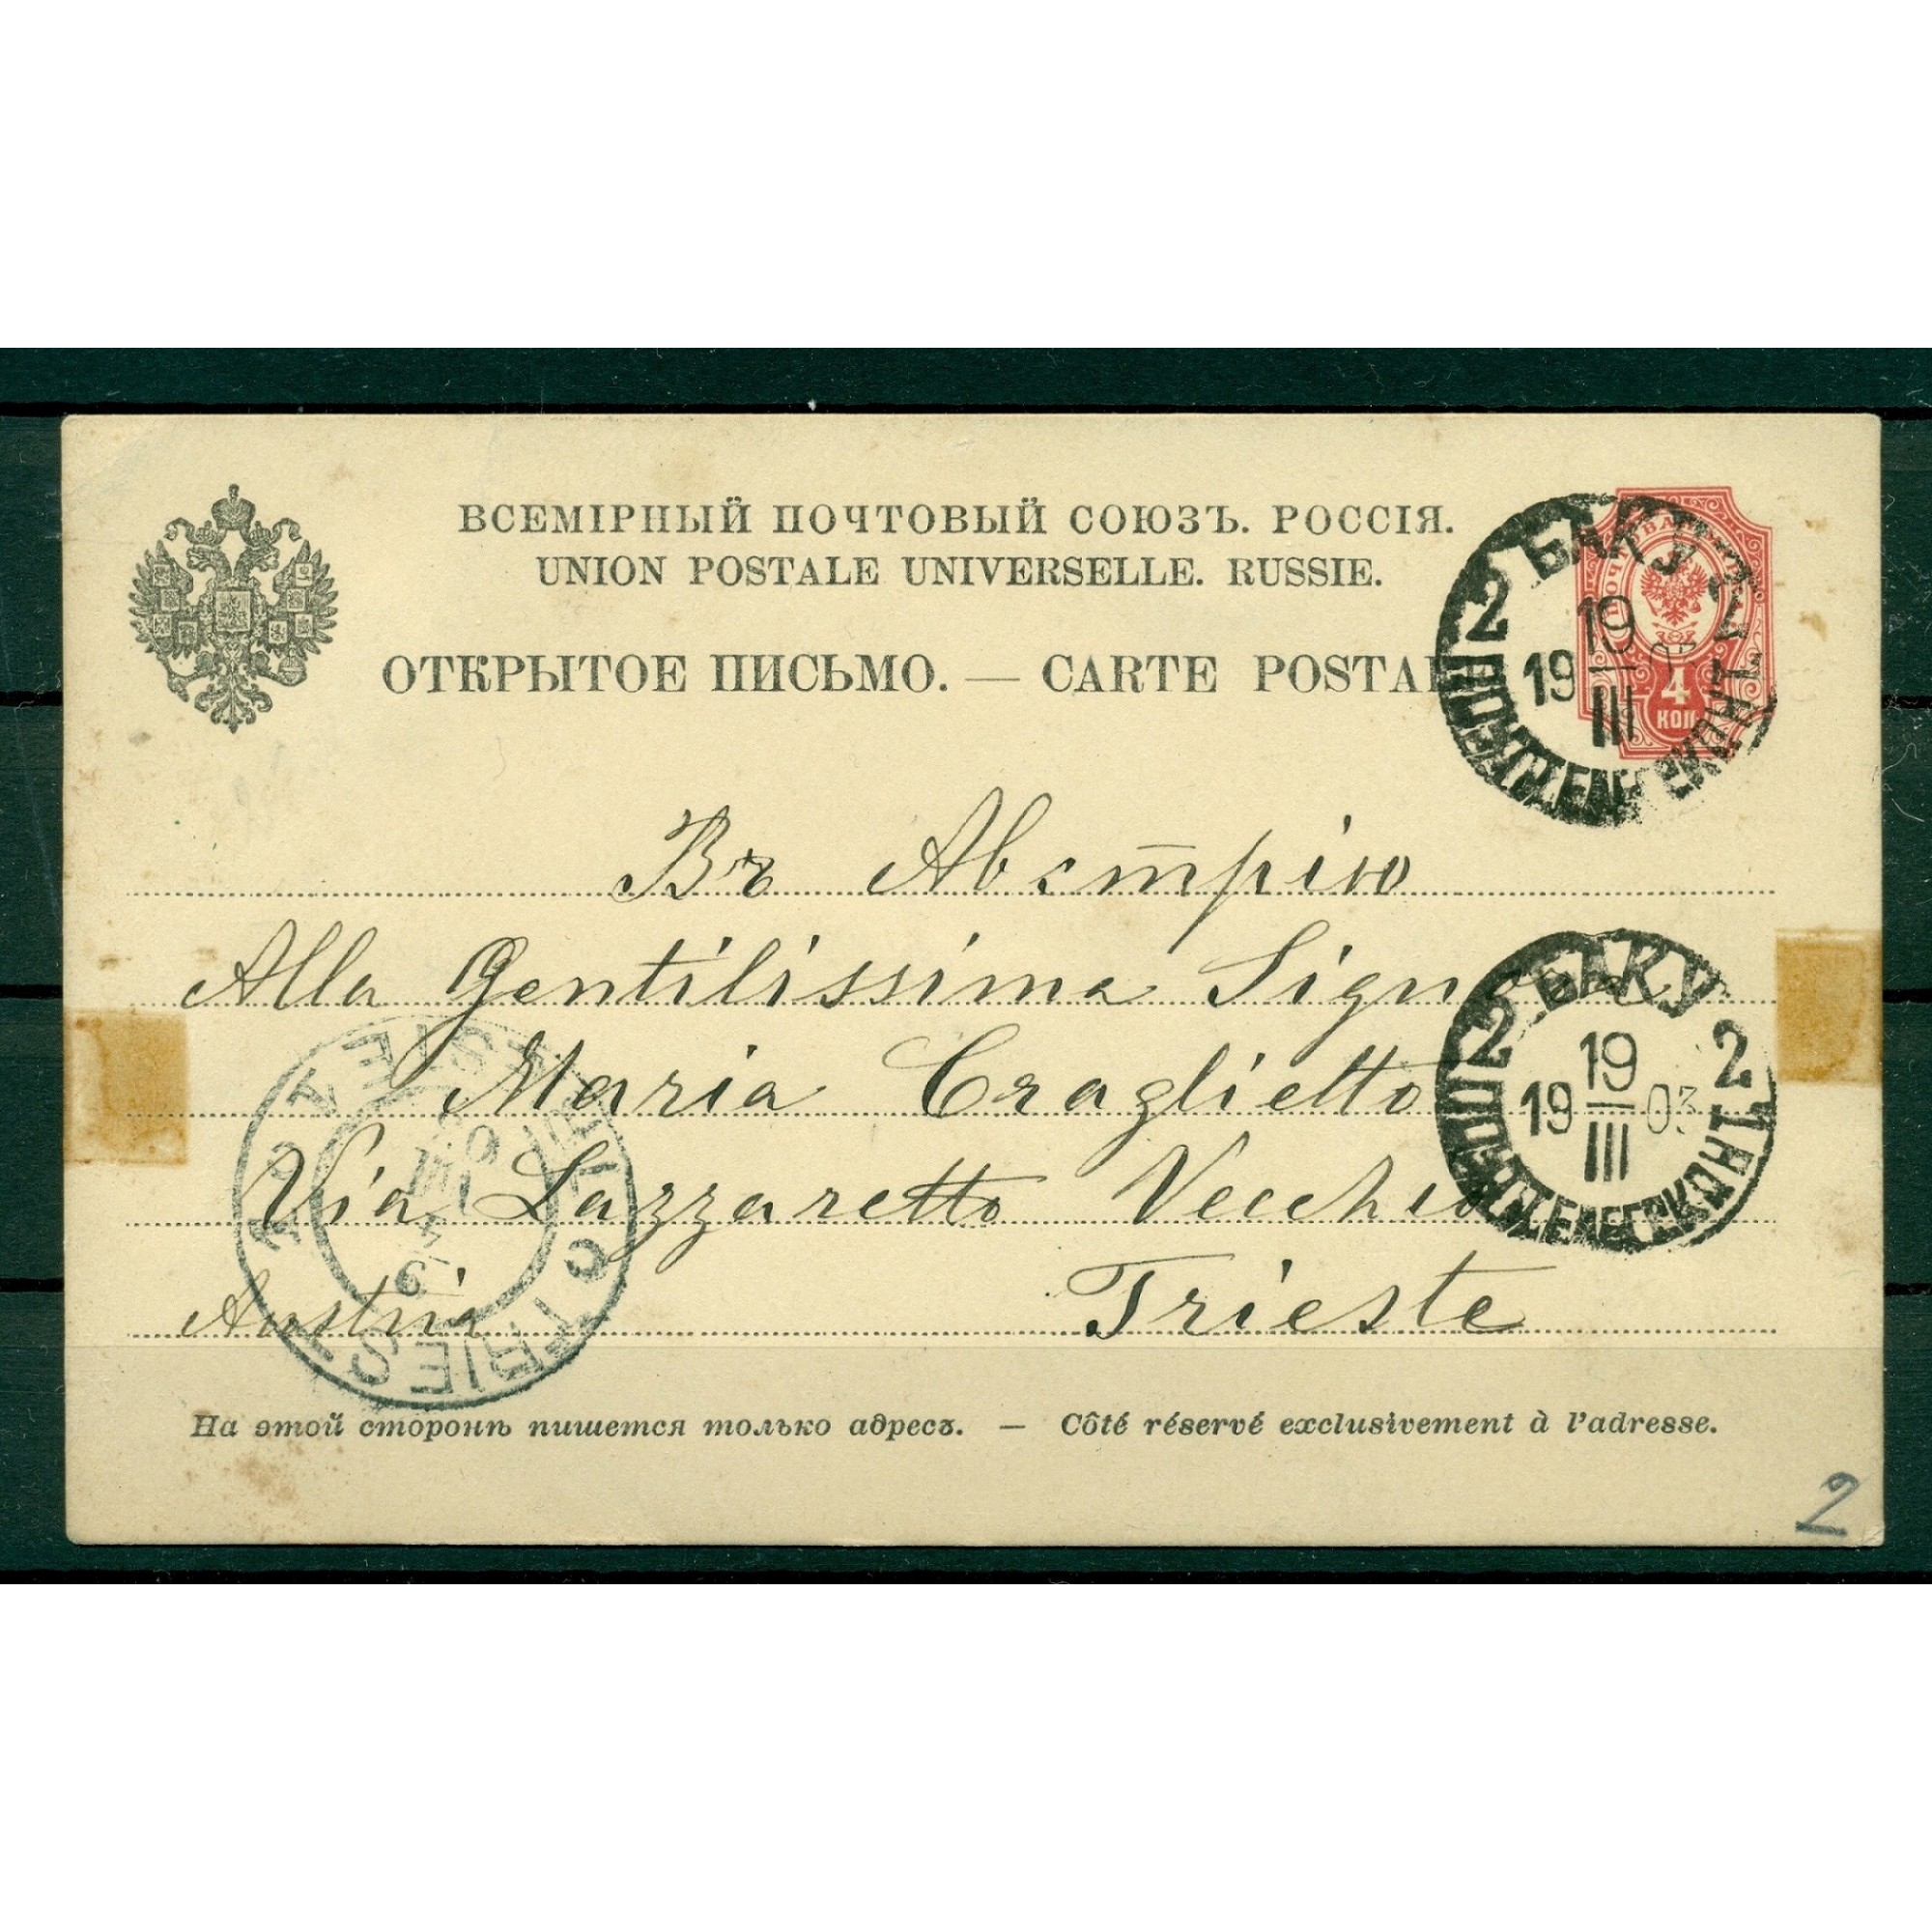 ВСЕМІРНЫЙ ПОЧТОВЫЙ СОЮЗЪ. РОССІЯ.
UNION POSTALE UNIVERSELLE. RUSSIE.
ОТКРЫТОЕ ПИСЬМО. — CARTE POSTAL
4
КОП
2 БАКУ 2
19
19 03
III
Въ Австрію
Alla Gentilissima Signora
Maria Craglietto
Via Lazzaretto Vecchio
Austria Trieste
2 БАКУ 2
19
19 03
III
TRIEST
TRIESTE
На этой сторонѣ пишется только адресъ. — Côté réservé exclusivement à l'adresse.
2